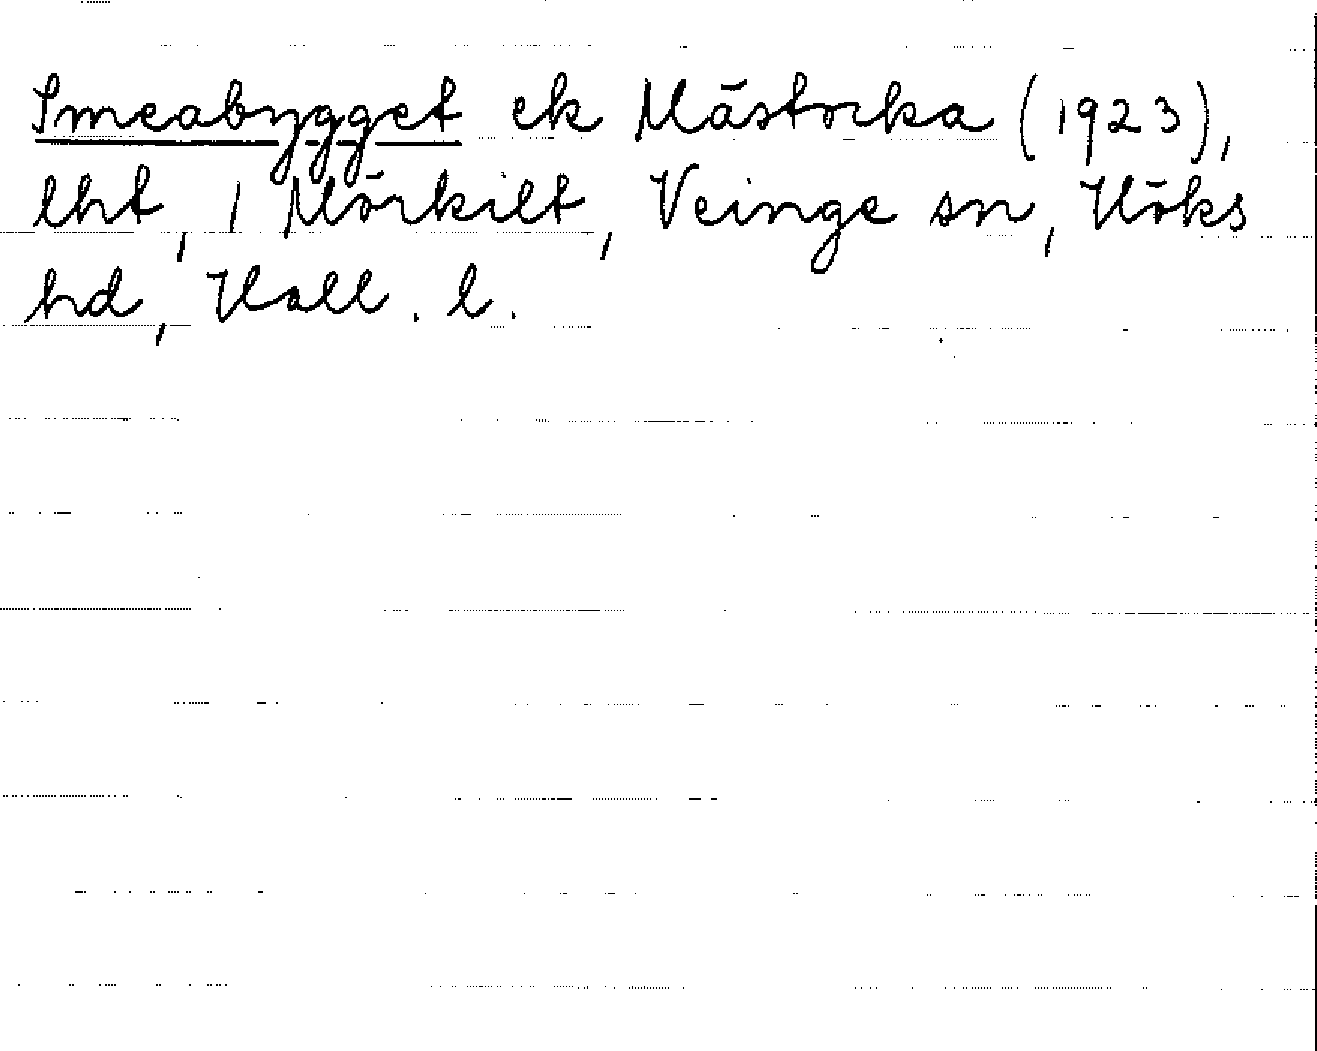 Smeabygget ek Mästocka (1923),
lht, 1 Mörkilt, Veinge sn, Höks
hd, Hall. l.